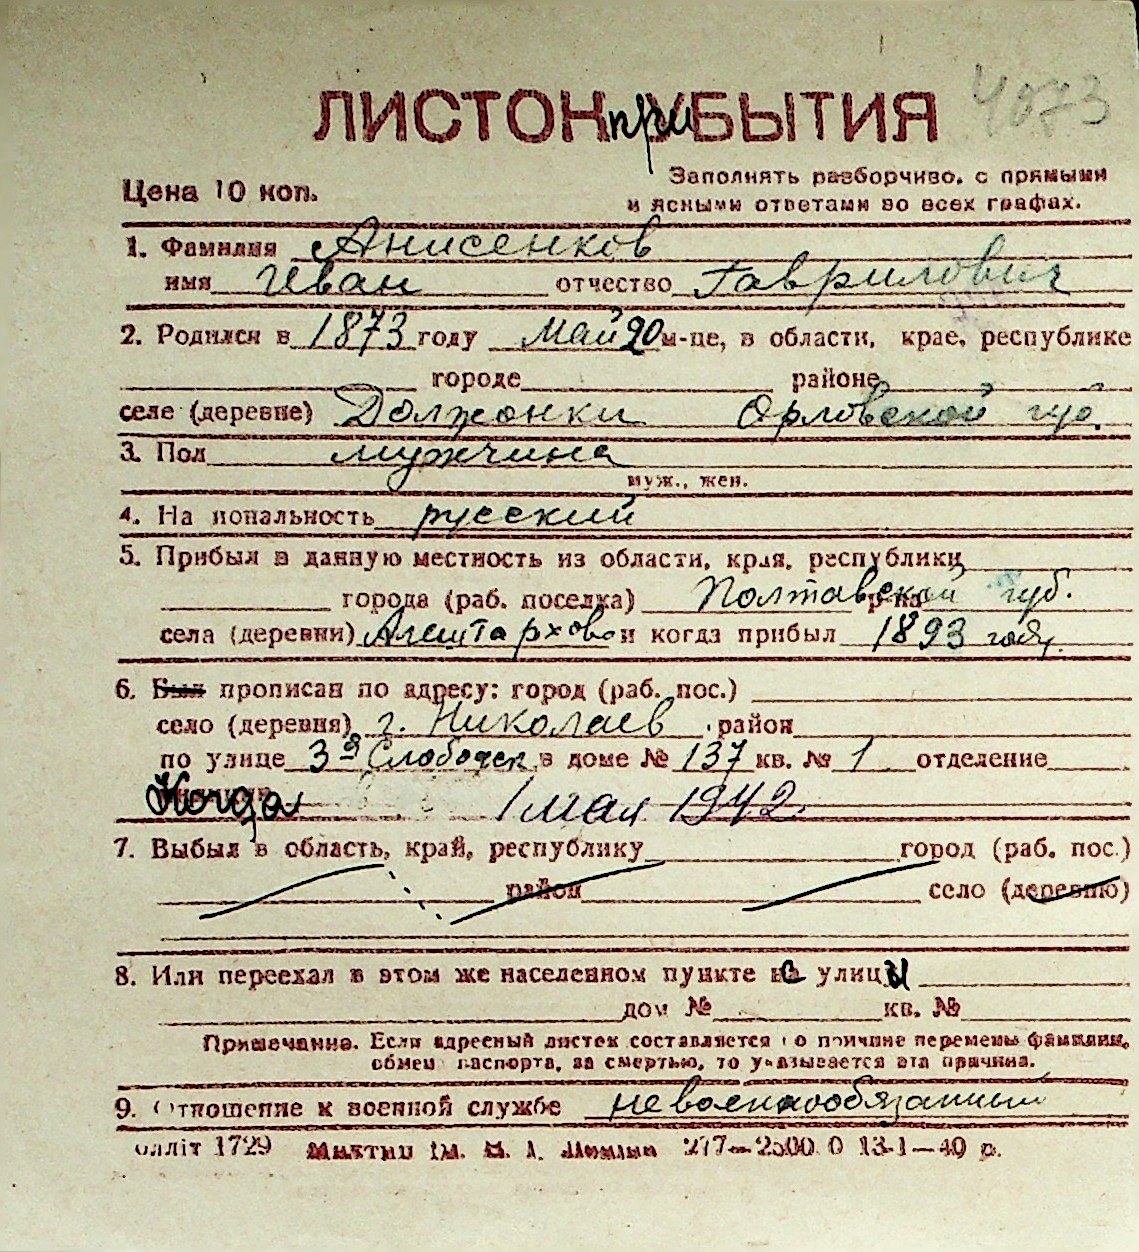 4073
ЛИСТОК при УБЫТИЯ
Цена 10 коп.
Заполнять разборчиво, с прямыми
и ясными ответами во всех графах.
1. Фамилия Анисенков
имя Иван отчество Гаврилович
2. Родился в 1873 году май 20 м-це, в области, крае, республике
городе районе
селе (деревне) Должонки Орловской губ.
3. Пол мужчина
муж., жен.
4. Национальность русский
5. Прибыл в данную местность из области, края, республики
города (раб. поселка) р-на Полтавской губ.
села (деревни) и когда прибыл 1893 году.
6. Был прописан по адресу: город (раб. пос.)
село (деревня) г. Николаев район
по улице 3я Слободск в доме № 137 кв. № 1 отделение
Когда 1 мая 1942.
7. Выбыл в область, край, республику город (раб. пос.)
район село (деревню)
8. Или переехал в этом же населенном пункте с улицы
дом № кв. №
Примечание. Если адресный листок составляется по причине перемены фамилии,
обмен паспорта, за смертью, то указывается эта причина.
9. Отношение к военной службе невоеннообязанный
олліт 1729 ім. 277—2500 0 13-1—40 р.